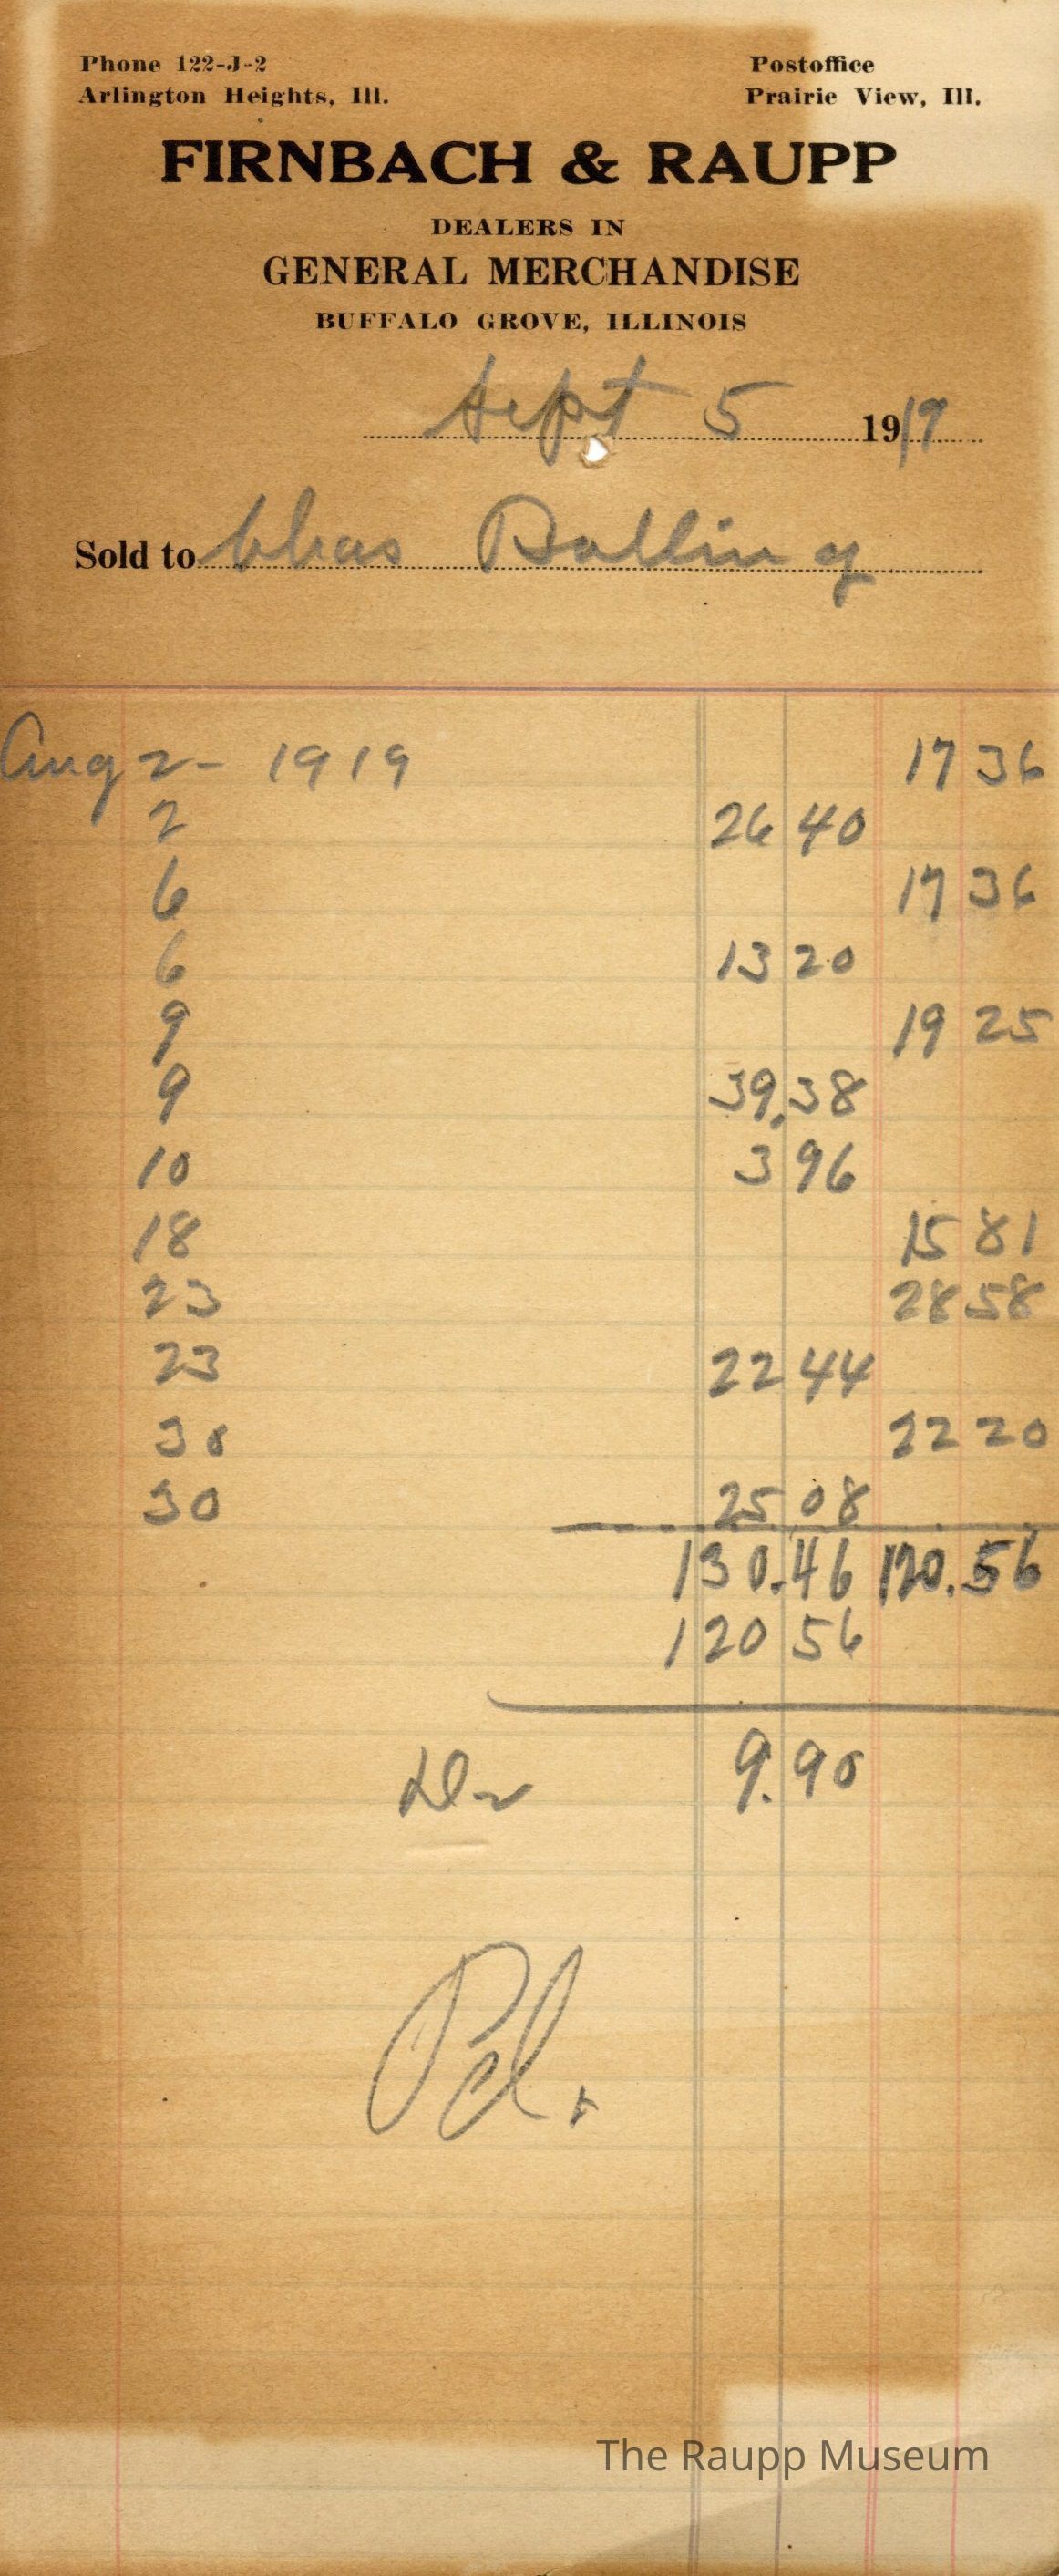 Phone 122-J-2 Postoffice
Arlington Heights, Ill. Prairie View, Ill.
FIRNBACH & RAUPP
DEALERS IN
GENERAL MERCHANDISE
BUFFALO GROVE, ILLINOIS
Sept 5 1919
Sold to Chas Balling
Aug 2 - 1919 17 36
2 26 40
6 17 36
6 13 20
9 19 25
9 39.38
10 3 96
18 15 81
23 28 58
23 22 44
30 22 20
30 25 08
130.46 120.56
120 56
Du 9.90
Pd.
The Raupp Museum